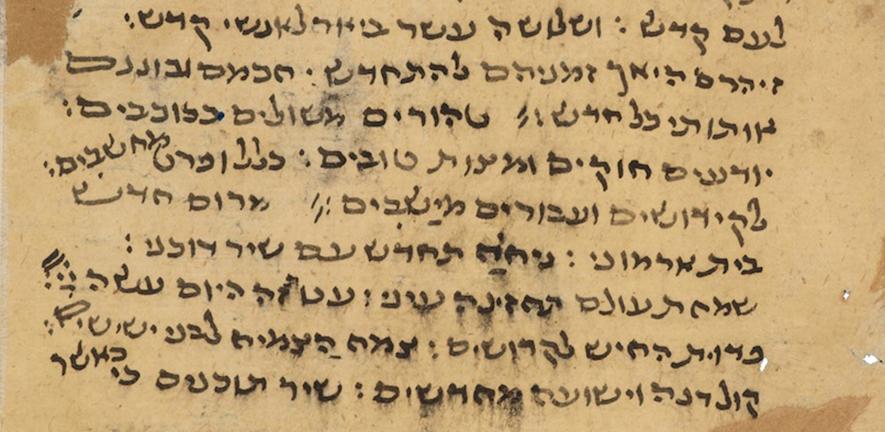 לעם קדש : ושלושה עשר ביאר לאנשי קדש :
זיהרם היאך זמניהם להתחדש : חכמם ובוננם
אותותי כל חדש :// טהורים משולים בכוכבים :
יודעים חוקים ומצות טובים : כלל ופרט מחשבים :
לקידושים ועבורים מישבים :// מרום חדש
בית ארמוני : ניחח תחדש עם שיר דוכני :
שמחת עולם תחזינה עיני : עט זה היום עשה ייי :
פדות החיש לקדושים : צמח הצמיח לבני ישישים :
קול רנה וישועה מחדשים : שיר תוכנים כי כאשר